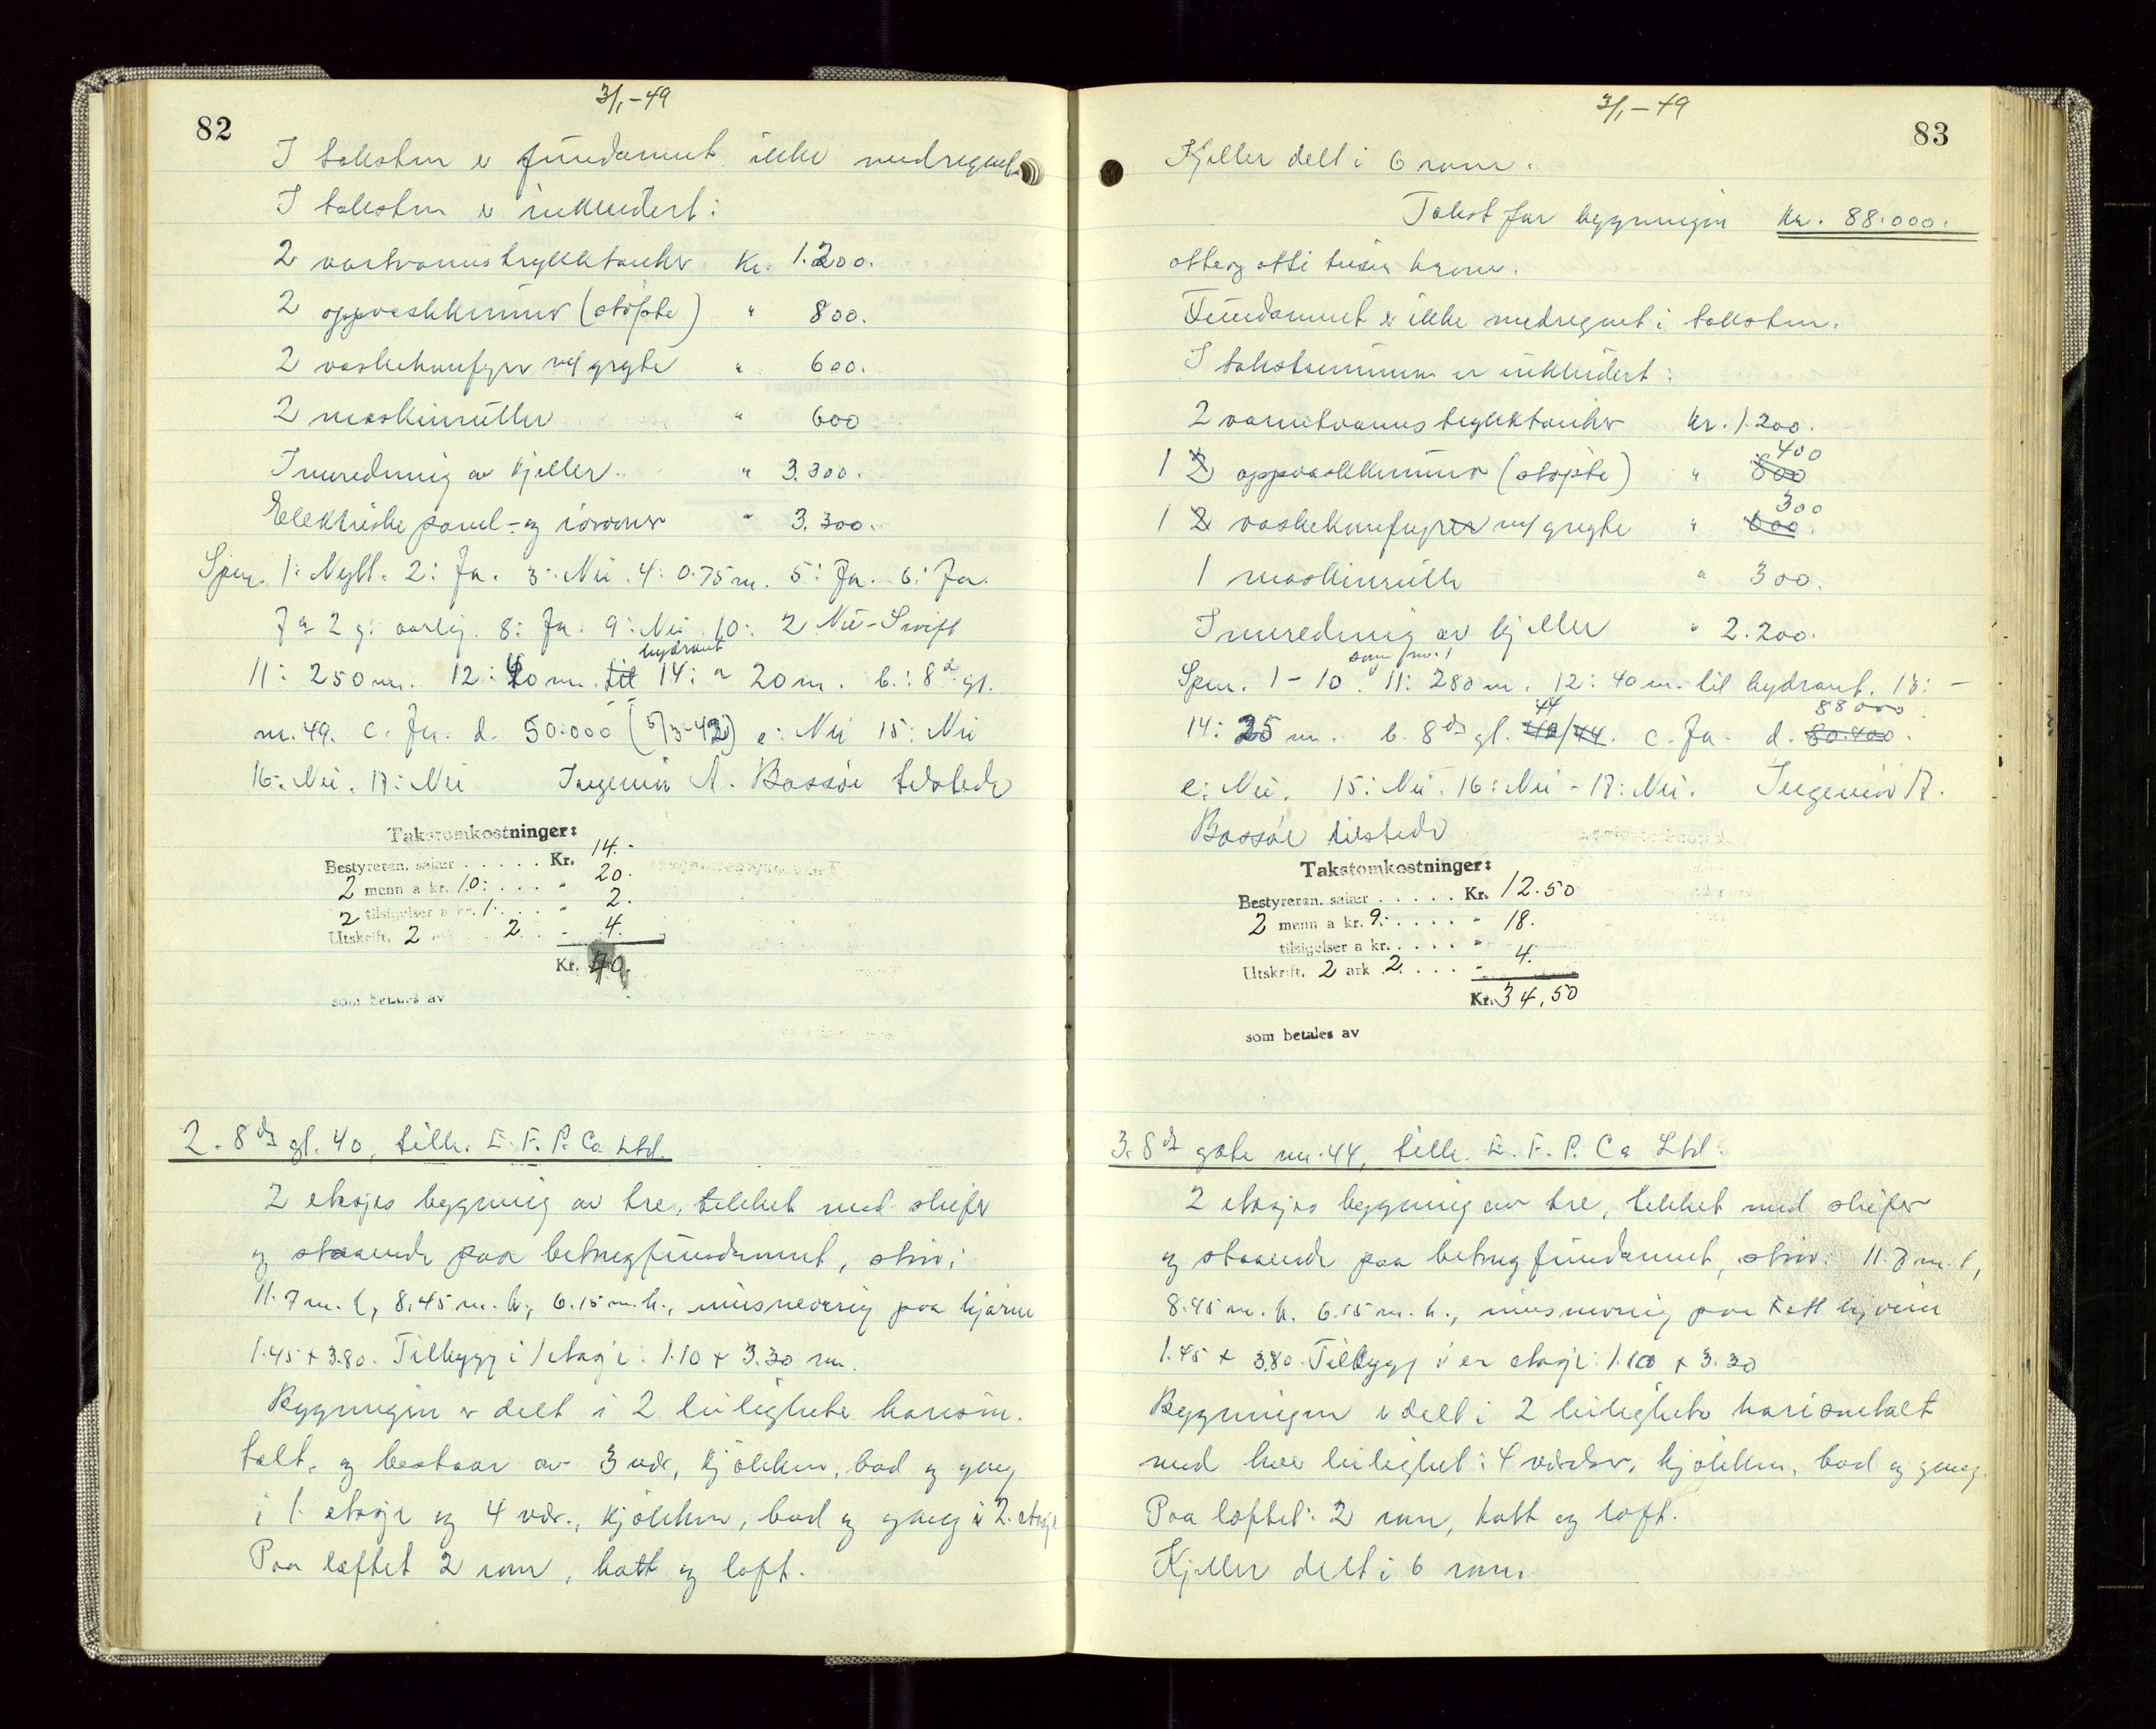 82
3/1-49
I taksten er fundament ikke medregnet.
I taksten er inkludert:
2 vartvannstrykktanker Kr. 1.200.
2 oppvaskkummer (støpte) " 800.
2 vaskekumfyrer m/ gryte " 600.
2 maskinruller " 600
Innredning av kjeller. " 3.300.
Elektriske panel- og " 3.300.
Spm. 1: Nytt. 2: Ja. 3: Nei. 4: 0.75 m. 5: Ja. 6: Ja.
7a 2 g: aarlig. 8: Ja. 9: Nei 10: 2 Nu-Swift
hydrant
11: 250 m. 12: 40 m. til 14: a 20 m. b.: 8d gt.
nr. 49. c. Ja. d. 50.000 (5/3-42) e: Nei 15: Nei
16: Nei. 17: Nei Ingeniør A. Bassøe tilstede
Takstomkostninger:
Bestyreren, salær . . . . . Kr. 14.-
2 menn a kr. 10: . . . " 20.
2 tilsigelser a kr. 1. . . " 2.
Utskrift. 2 2 . - 4.
Kr. 40.
som betales av
2. 8de gt. 40, tilh. E. F. P. Co Ltd.
2 etasjes bygning av tre, tekket med skifer
og staaende paa betongfundament, stor:
11.7 m. l, 8.45 m. b., 6.15 m. h., minus paa hjørne
1.45 + 3.80. Tilbygg i 1 etasje: 1.10 + 3.30 m.
Bygningen er delt i 2 leiligheter horison-
talt, og bestaar av 3 vær, kjøkken, bad og gang
i 1. etasje og 4 vær., kjøkken, bad og gang i 2. etasje
Paa loftet 2 rom, kott og loft.
3/1-49
83
Kjeller delt i 6 rom.
Takst for bygningen kr. 88.000.
otteog otti tusen kroner.
Fundament er ikke medregnet i taksten.
I takstsummen er inkludert:
2 varmtvannstrykktanker kr. 1.200.
400
1 2 oppvaskkummer (støpte) " 800
300
1 2 vaskekumfyrer m/ gryte " 600.
1 maskinrulle " 300.
Innredning av kjeller " 2.200.
som nr. 1
Spm. 1-10. 11: 280 m. 12: 40 m. til hydrant. 13: -
44 88000
14: 25 m. b. 8de gt. 42/44. c. Ja. d. 80.400.
e: Nei. 15: Nei. 16: Nei - 17: Nei. Ingeniør A.
Bassøe tilstede
Takstomkostninger:
Bestyreren, salær . . . . . Kr. 12.50
2 menn a kr. 9: . . . . " 18.
tilsigelser a kr. . . . . "
Utskrift. 2 ark 2. . . . - 4.
Kr. 34,50
som betales av
3. 8de gate nr. 44, tilh. E. F. P. Co Ltd:
2 etasjes bygning av tre, tekket med skifer
og staaende paa betongfundament, stor: 11.7 m. l,
8.45 m. b. 6.15 m. h., minus paa ett hjørne
1.45 + 3.80. Tilbygg i en etasje: 1.10 + 3.30
Bygningen er delt i 2 leiligheter horisontalt
med hver leilighet: 4 værelser, kjøkken, bad og gang.
Paa loftet: 2 rom, kott og loft.
Kjeller delt i 6 rom